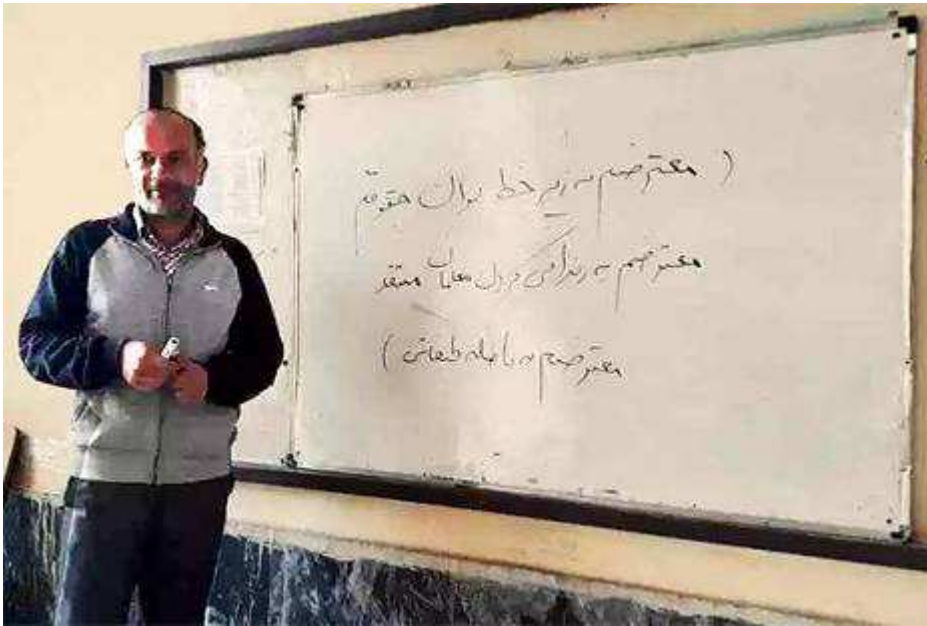 ( معترضم به زیر خط بودن حقوقم
معترضم به زندانی کردن معلمان منتقد
معترضم به فاصله طبقاتی )